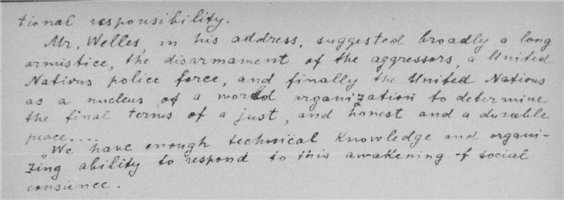 tional responsibility.
Mr. Welles, in his address, suggested broadly a long
armistice, the disarmament of the aggressors, a United
Nations police force, and finally the United Nations
as a nucleus of a world organization to determine
the final terms of a just, and honest and a durable
peace....
"We have enough technical knowledge and organi-
zing ability to respond to this awakening of social
consience.